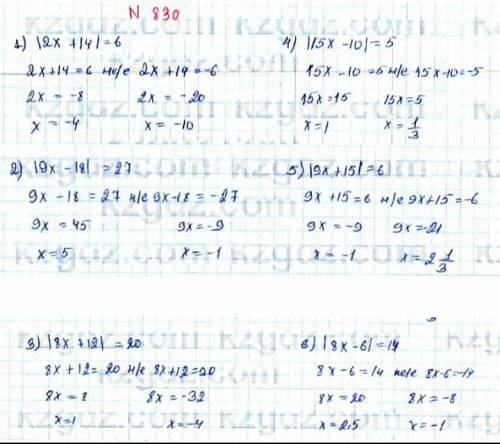 N 830
1) |2x + 14| = 6
2x+14 = 6 н/е 2x+14 = -6
2x = -8 2x = -20
x = -4 x = -10
2) |9x - 18| = 27
9x - 18 = 27 н/е 9x-18 = -27
9x = 45 9x = -9
x = 5 x = -1
3) |8x + 12| = 20
8x + 12 = 20 н/е 8x+12=20
8x = 8 8x = -32
x=1 x = -4
4) |15x - 10| = 5
15x - 10 = 5 н/е 15x-10 = -5
15x = 15 15x = 5
x = 1 x = 1/3
5) |9x + 15| = 6
9x + 15 = 6 н/е 9x+15 = -6
9x = -9 9x = -21
x = -1 x = 2 1/3
6) |8x - 6| = 14
8x - 6 = 14 н/е 8x-6=-14
8x = 20 8x = -8
x = 2,5 x = -1
kzgdz.com